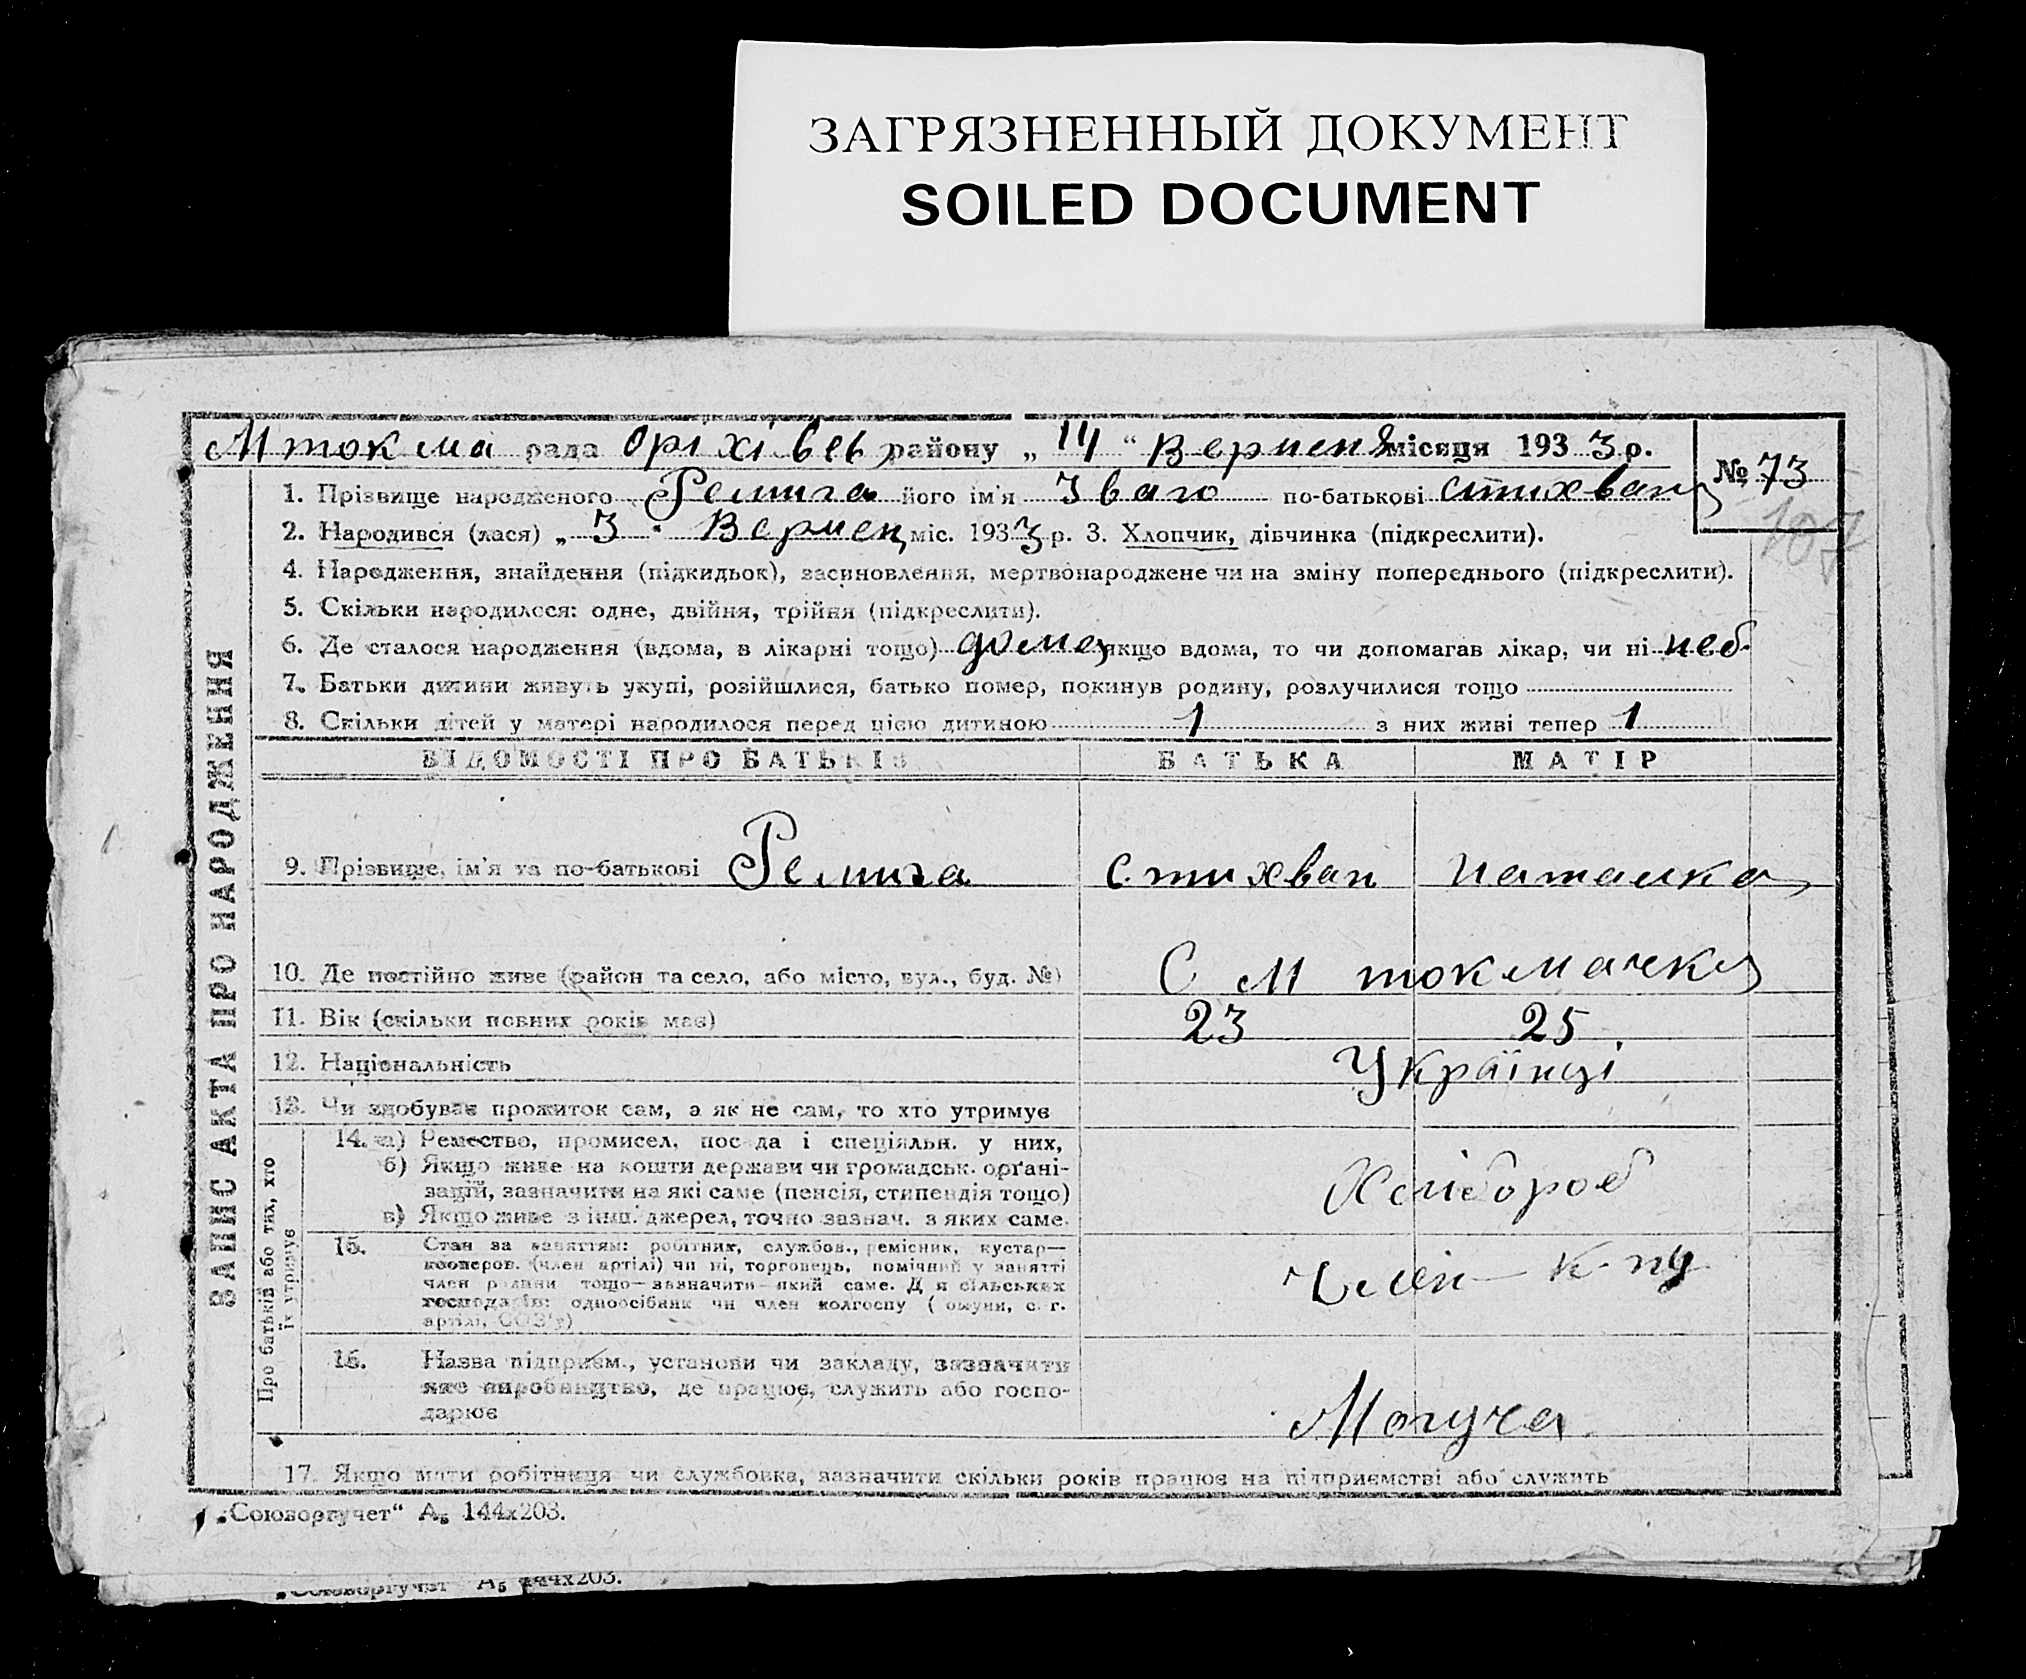 ЗАГРЯЗНЕННЫЙ ДОКУМЕНТ
SOILED DOCUMENT
М токма рада оріхівсь району „ 14 “ Версня місяця 193 3 р.
№ 73
107
1. Прізвище народженого Ремига його ім'я Іваго по-батькові стихван
2. Народився (лася) „ 3 Версен міс. 193 3 р. 3. Хлопчик, дівчинка (підкреслити).
4. Народження, знайдення (підкидьок), засиновлення, мертвонароджене чи на зміну попереднього (підкреслити).
5. Скільки народилося: одне, двійня, трійня (підкреслити).
6. Де сталося народження (вдома, в лікарні тощо) дома якщо вдома, то чи допомагав лікар, чи ні
7. Батьки дитини живуть укупі, розійшлися, батько помер, покинув родину, розлучилися тощо
8. Скільки дітей у матері народилося перед цією дитиною 1 з них живі тепер 1
ВІДОМОСТІ ПРО БАТЬКІВ БАТЬКА МАТІР
9. Прізвище, ім'я та по-батькові Ремига стихван наталка
10. Де постійно живе (район та село, або місто, вул., буд. №) С М токмачка
11. Вік (скільки повних років має) 23 25
12. Національність Українці
13. Чи здобуває прожиток сам, а як не сам, то хто утримує
14. а) Ремество, промисел, посада і спеціяльн. у них,
б) Якщо живе на кошти держави чи громадськ. орґані-
зацій, зазначити на які саме (пенсія, стипендія тощо)
в) Якщо живе з інш. джерел, точно зазнач. з яких саме.
Хлібороб
15. Стан за заняттям: робітник, службов., ремісник, кустар—
кооперов. (член артілі) чи ні, торговець, помічний у занятті
член родини тощо—зазначити який саме. Для сільських
господарів: одноосібник чи член колгоспу (комуни, с. г.
артілі, СОЗ'у)
Член к-пу
16. Назва підприєм., установи чи закладу, зазначити
яке виробництво, де працює, служить або госпо-
дарює
Могуча
17. Якщо мати робітниця чи службовка, зазначити скільки років працює на підприємстві або служить
ЗАПИС АКТА ПРО НАРОДЖЕННЯ
Про батьків або тих, хто
їх утримує
„Союзоргучет“ А₅ 144х203.
„Союзоргучет“ А₅ 144х203.